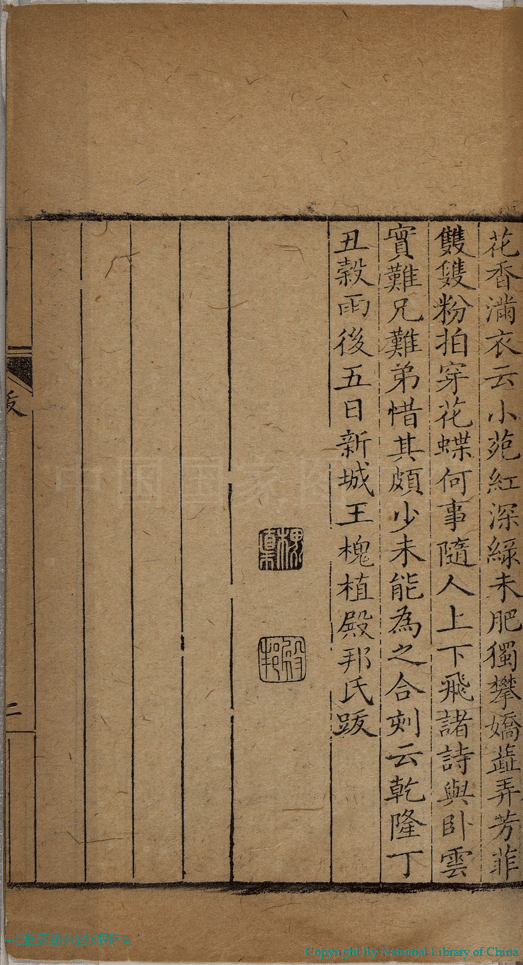 花香滿衣云小苑紅深綠未肥獨攀嬌蘂弄芳菲
雙雙粉拍穿花蝶何事隨人上下飛諸詩與臥雲
實難兄難弟惜其頗少未能為之合刻云乾隆丁
丑穀雨後五日新城王槐植殿邦氏跋
跋
二
Copyright By National Library of China